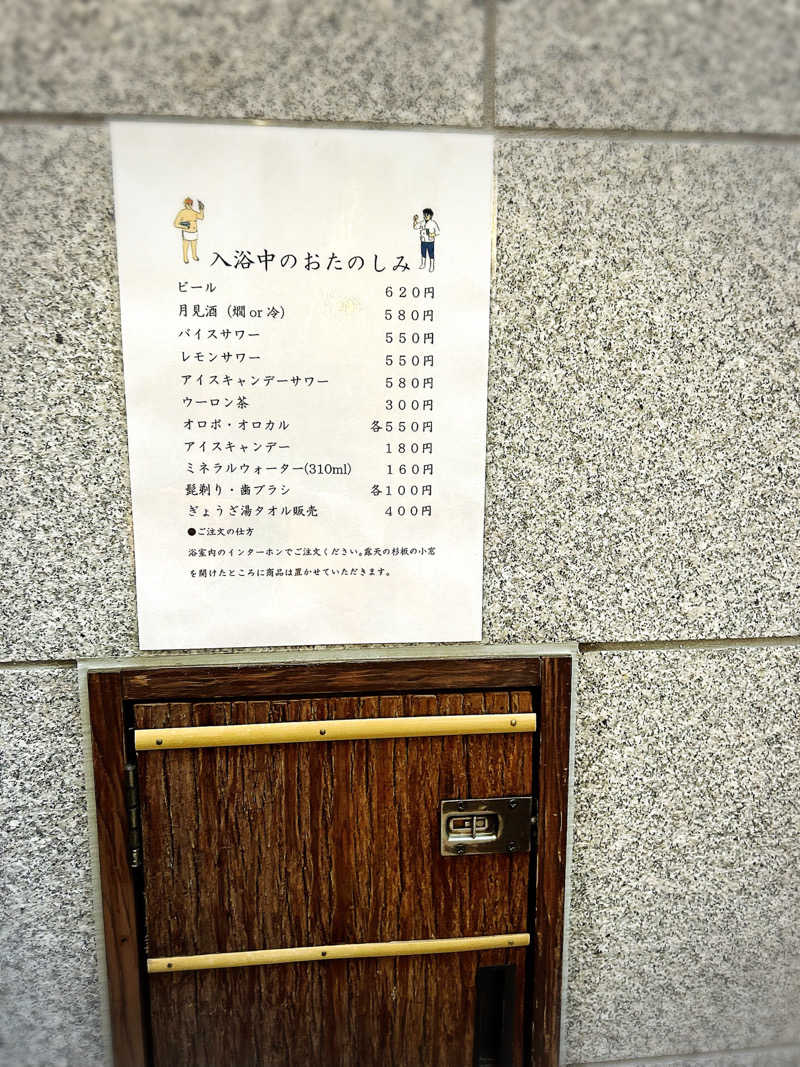 入浴中のおたのしみ
ビール 620円
月見酒（燗 or 冷） 580円
バイスサワー 550円
レモンサワー 550円
アイスキャンデーサワー 580円
ウーロン茶 300円
オロポ・オロカル 各550円
アイスキャンデー 180円
ミネラルウォーター(310ml) 160円
髭剃り・歯ブラシ 各100円
ぎょうざ湯タオル販売 400円
●ご注文の仕方
浴室内のインターホンでご注文ください。露天の杉板の小窓
を開けたところに商品は置かせていただきます。